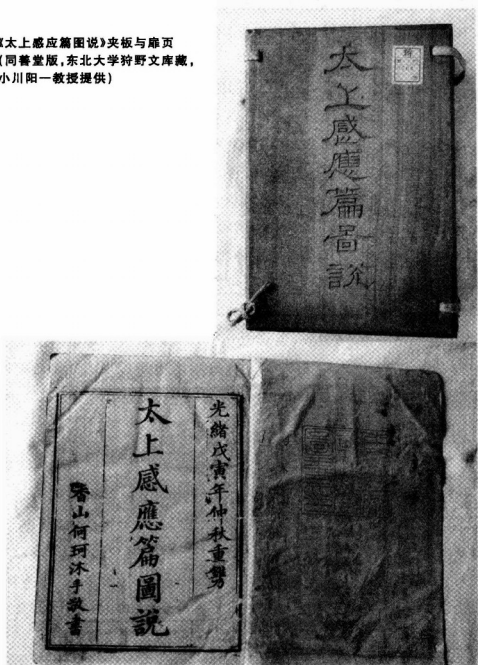 《太上感应篇图说》夹板与扉页
（同善堂版，东北大学狩野文库藏，
小川阳一教授提供）
太上感應篇圖説
光緒戊寅年仲秋重鐫
太上感應篇圖説
香山何珂沐手敬書